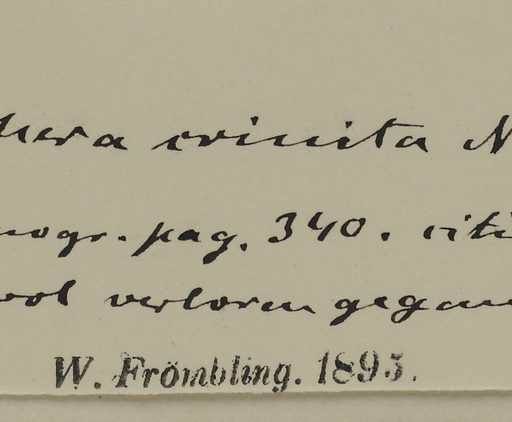 hera crinita N
nogr. pag. 340. citi
wol verloren gegan
W. Frömbling. 1895.